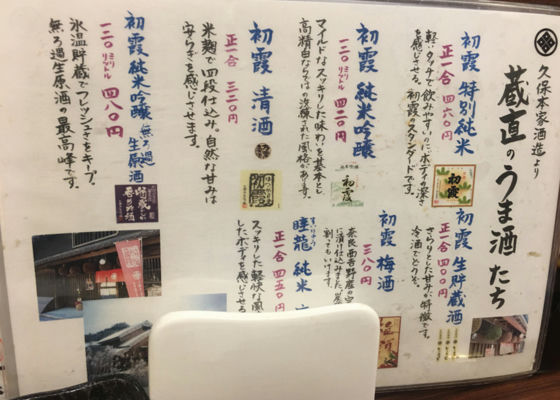 久保本家酒造より
蔵直のうま酒たち
初霞 特別純米
正一合 四六〇円
軽いタッチで飲みやすいのに、ボディの深さ
を感じさせる。初霞のスタンダードです。
初霞
初霞 純米吟醸
一二〇ミリリットル 四二〇円
マイルドなスッキリした味わいを基本とし
高精白ならではの洗練された風格があります。
初霞
初霞 清酒
正一合 三二〇円
米麹で四段仕込み。自然な甘みは
安らぎを感じさせます。
初霞
初霞 純米吟醸 無ろ過生原酒
一二〇ミリリットル 四八〇円
氷温貯蔵でフレッシュさをキープ。
無ろ過生原酒の最高峰です。
初霞 生貯蔵酒
正一合 四〇〇円
さらりとした甘みが特徴です。
冷酒でどうぞ。
初霞 梅酒
三八〇円
奈良西吉野産の
に漬け込みました。
割ってもいけます。
睡龍 純米
すいりゅう
正一合 四五〇円
スッキリした軽快な風
したボディを感じさせる